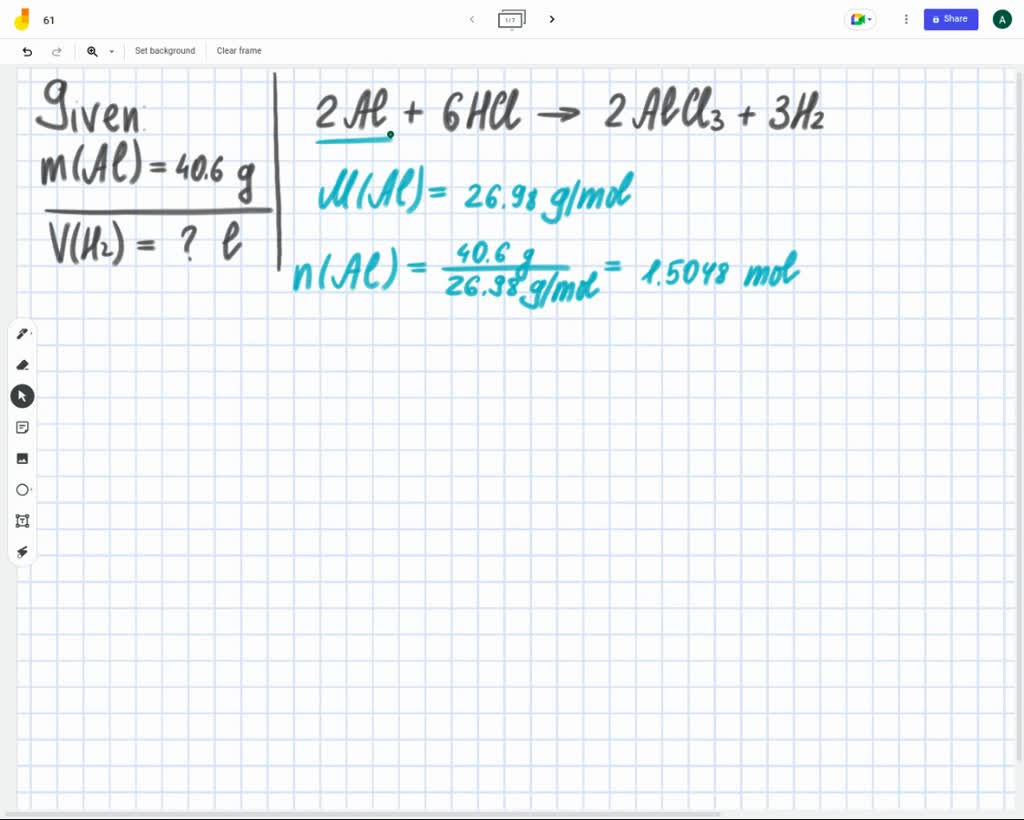 61
1/7
Share
A
Set background
Clear frame
Given:
m(Al) = 40.6 g
V(H₂) = ? l
2Al + 6HCl → 2AlCl₃ + 3H₂
M(Al) = 26.98 g/mol
n(Al) = 40.6 g / 26.98 g/mol = 1.5048 mol